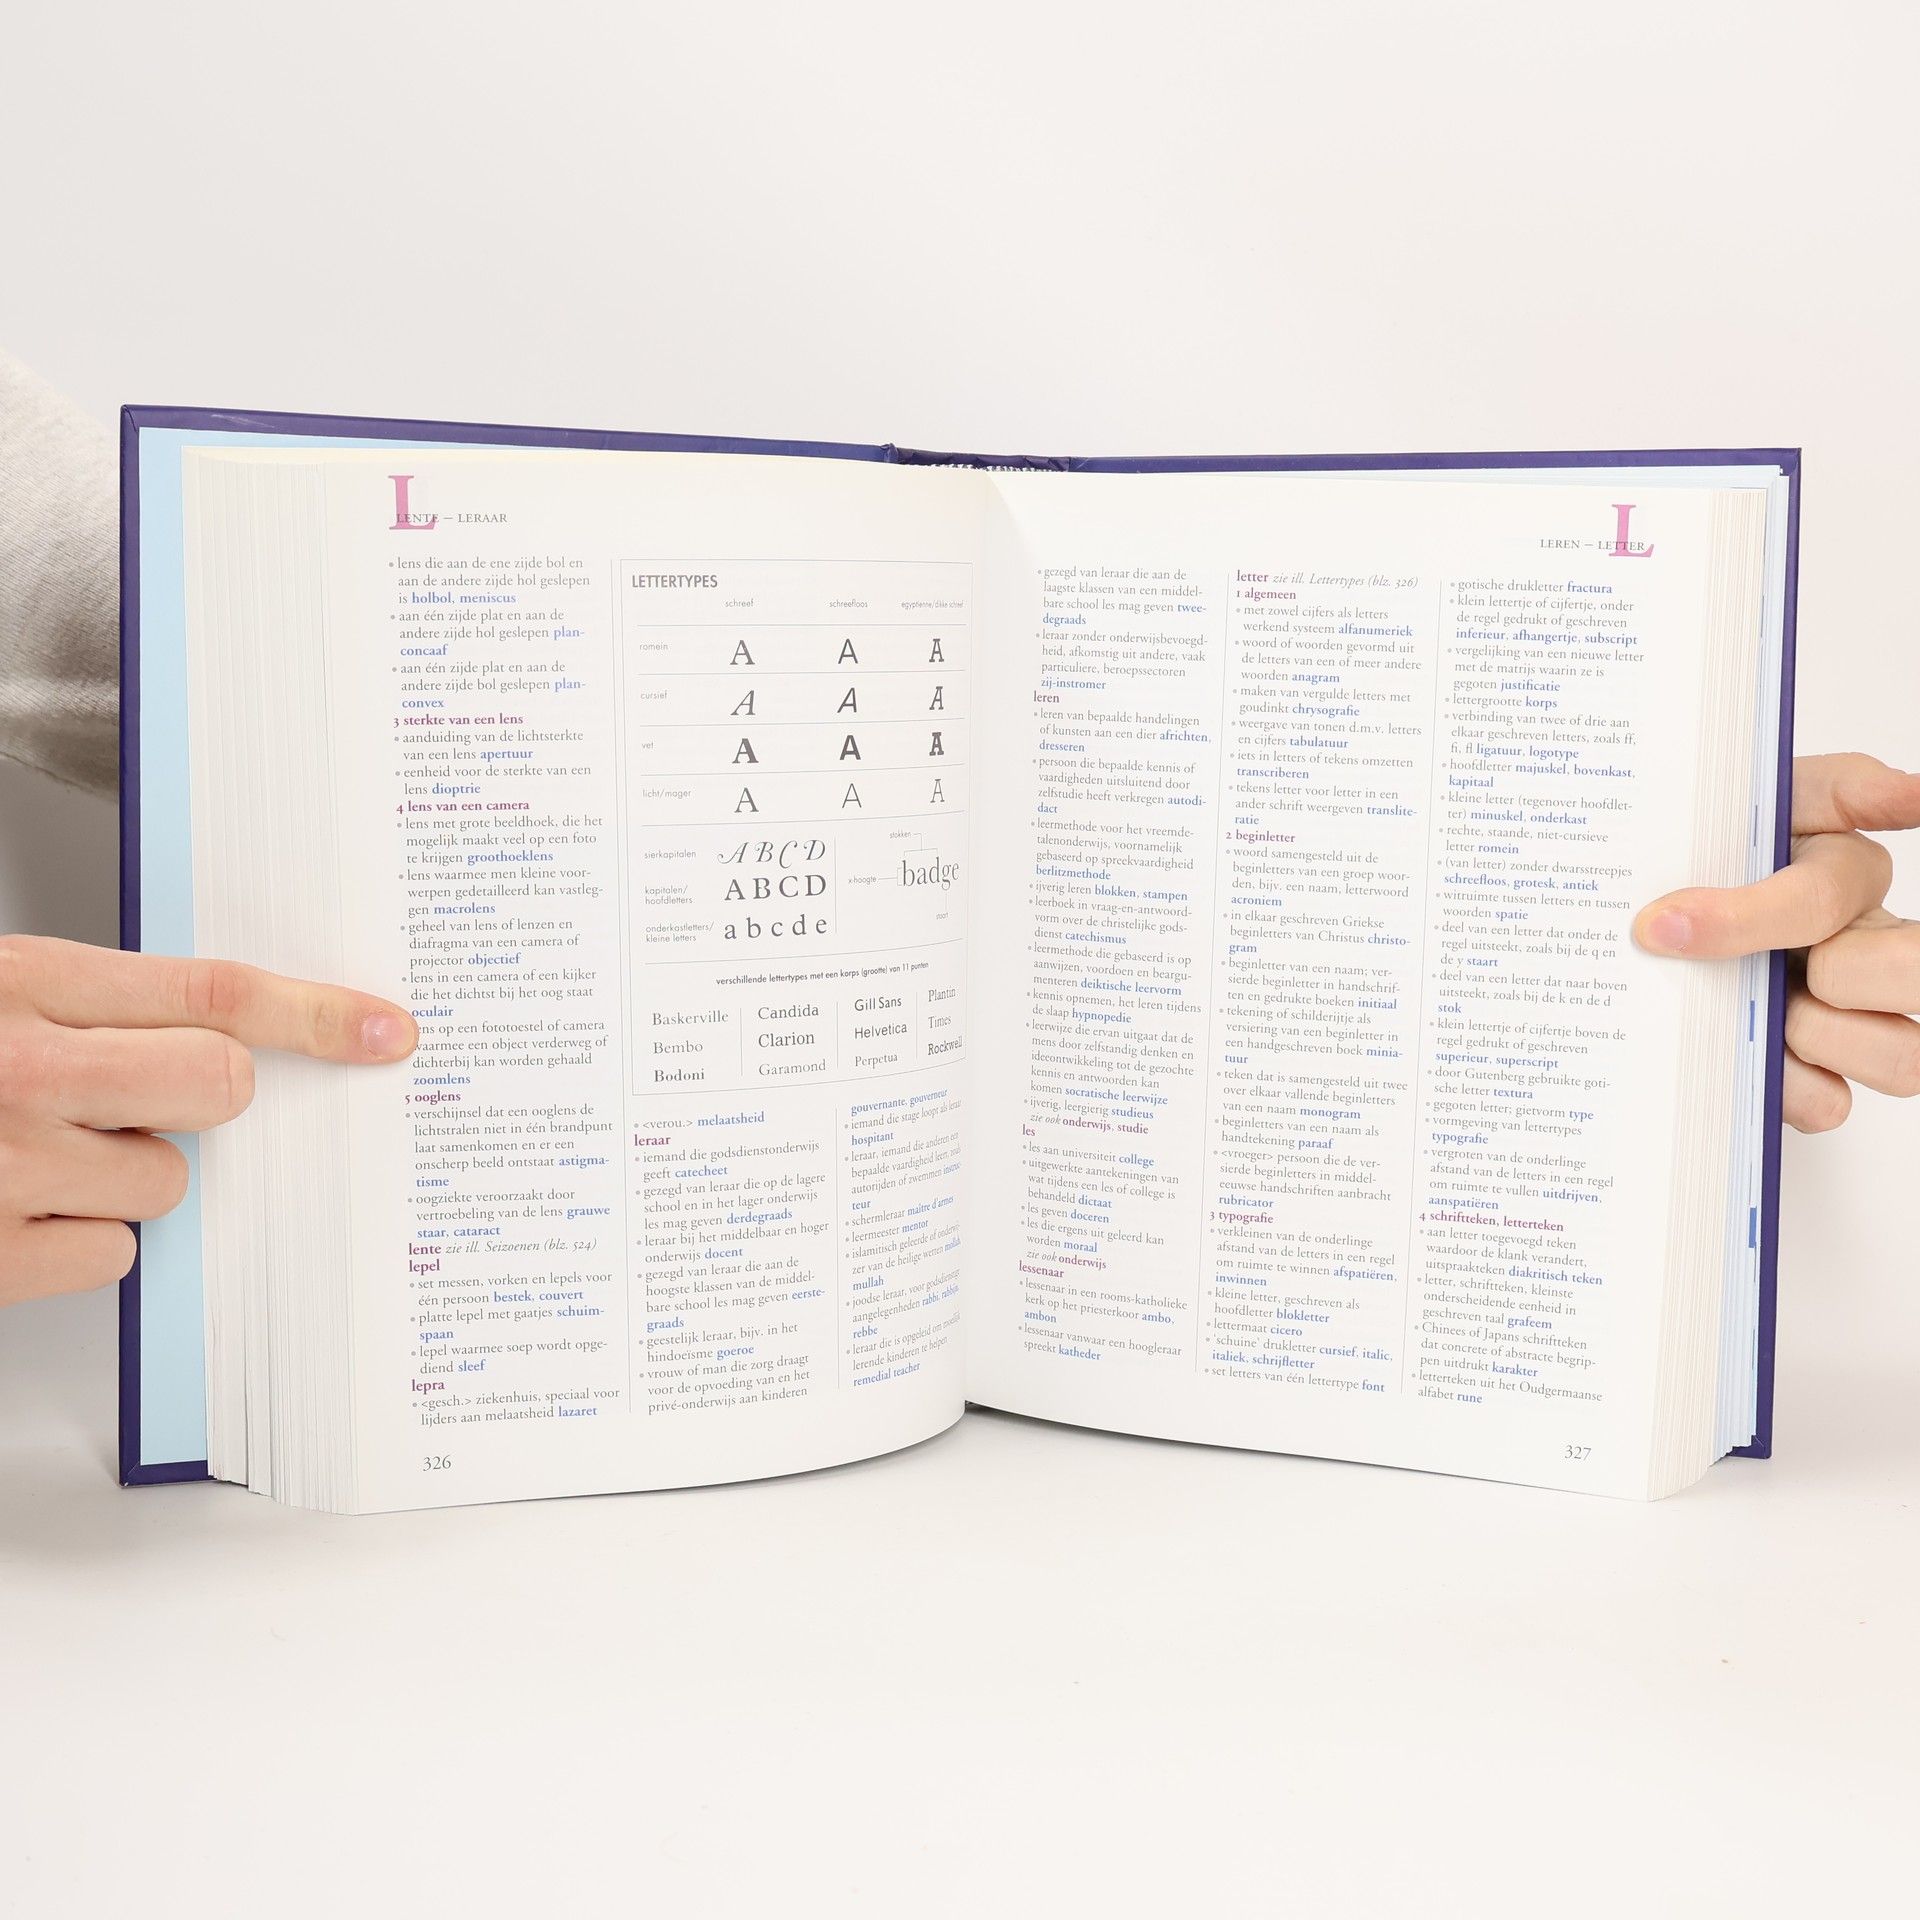 L
LENTE – LERAAR
• lens die aan de ene zijde bol en
aan de andere zijde hol geslepen
is holbol, meniscus
• aan één zijde plat en aan de
andere zijde hol geslepen plan-
concaaf
• aan één zijde plat en aan de
andere zijde bol geslepen plan-
convex
3 sterkte van een lens
• aanduiding van de lichtsterkte
van een lens apertuur
• eenheid voor de sterkte van een
lens dioptrie
4 lens van een camera
• lens met grote beeldhoek, die het
mogelijk maakt veel op een foto
te krijgen groothoeklens
• lens waarmee men kleine voor-
werpen gedetailleerd kan vastleg-
gen macrolens
• geheel van lens of lenzen en
diafragma van een camera of
projector objectief
• lens in een camera of een kijker
die het dichtst bij het oog staat
oculair
ens op een fototoestel of camera
waarmee een object verderweg of
dichterbij kan worden gehaald
zoomlens
5 ooglens
• verschijnsel dat een ooglens de
lichtstralen niet in één brandpunt
laat samenkomen en er een
onscherp beeld ontstaat astigma-
tisme
• oogziekte veroorzaakt door
vertroebeling van de lens grauwe
staar, cataract
lente zie ill. Seizoenen (blz. 524)
lepel
• set messen, vorken en lepels voor
één persoon bestek, couvert
• platte lepel met gaatjes schuim-
spaan
• lepel waarmee soep wordt opge-
diend sleef
lepra
• <gesch.> ziekenhuis, speciaal voor
lijders aan melaatsheid lazaret
LETTERTYPES
schreef schreefloos egyptienne/dikke schreef
romein A A A
cursief A A A
vet A A A
licht/mager A A A
sierkapitalen A B C D
kapitalen/
hoofdletters A B C D
onderkastletters/
kleine letters a b c d e
stokken
x-hoogte badge
staart
verschillende lettertypes met een korps (grootte) van 11 punten
Baskerville Candida Gill Sans Plantin
Bembo Clarion Helvetica Times
Bodoni Garamond Perpetua Rockwell
• <verou.> melaatsheid
leraar
• iemand die godsdienstonderwijs
geeft catecheet
• gezegd van leraar die op de lagere
school en in het lager onderwijs
les mag geven derdegraads
• leraar bij het middelbaar en hoger
onderwijs docent
• gezegd van leraar die aan de
hoogste klassen van de middel-
bare school les mag geven eerste-
graads
• geestelijk leraar, bijv. in het
hindoeïsme goeroe
• vrouw of man die zorg draagt
voor de opvoeding van en het
privé-onderwijs aan kinderen
gouvernante, gouverneur
• iemand die stage loopt als leraar
hospitant
• leraar, iemand die anderen een
bepaalde vaardigheid leert, zoals
autorijden of zwemmen instruc-
teur
• schermleraar maître d'armes
• leermeester mentor
• islamitisch geleerde of onderwij-
zer van de heilige wetten mollah,
mullah
• joodse leraar, voor godsdienstige
aangelegenheden rabbi, rabbijn,
rebbe
• leraar die is opgeleid om moeilijk
lerende kinderen te helpen
remedial teacher
326
L
LEREN – LETTER
• gezegd van leraar die aan de
laagste klassen van een middel-
bare school les mag geven twee-
degraads
• leraar zonder onderwijsbevoegd-
heid, afkomstig uit andere, vaak
particuliere, beroepssectoren
zij-instromer
leren
• leren van bepaalde handelingen
of kunsten aan een dier africhten,
dresseren
• persoon die bepaalde kennis of
vaardigheden uitsluitend door
zelfstudie heeft verkregen autodi-
dact
• leermethode voor het vreemde-
talenonderwijs, voornamelijk
gebaseerd op spreekvaardigheid
berlitzmethode
• ijverig leren blokken, stampen
• leerboek in vraag-en-antwoord-
vorm over de christelijke gods-
dienst catechismus
• leermethode die gebaseerd is op
aanwijzen, voordoen en beargu-
menteren deiktische leervorm
• kennis opnemen, het leren tijdens
de slaap hypnopedie
• leerwijze die ervan uitgaat dat de
mens door zelfstandig denken en
ideeontwikkeling tot de gezochte
kennis en antwoorden kan
komen socratische leerwijze
• ijverig, leergierig studieus
zie ook onderwijs, studie
les
• les aan universiteit college
• uitgewerkte aantekeningen van
wat tijdens een les of college is
behandeld dictaat
• les geven doceren
• les die ergens uit geleerd kan
worden moraal
zie ook onderwijs
lessenaar
• lessenaar in een rooms-katholieke
kerk op het priesterkoor ambo,
ambon
• lessenaar vanwaar een hoogleraar
spreekt katheder
letter zie ill. Lettertypes (blz. 326)
1 algemeen
• met zowel cijfers als letters
werkend systeem alfanumeriek
• woord of woorden gevormd uit
de letters van een of meer andere
woorden anagram
• maken van vergulde letters met
goudinkt chrysografie
• weergave van tonen d.m.v. letters
en cijfers tabulatuur
• iets in letters of tekens omzetten
transcriberen
• tekens letter voor letter in een
ander schrift weergeven translite-
ratie
2 beginletter
• woord samengesteld uit de
beginletters van een groep woor-
den, bijv. een naam, letterwoord
acroniem
• in elkaar geschreven Griekse
beginletters van Christus christo-
gram
• beginletter van een naam; ver-
sierde beginletter in handschrif-
ten en gedrukte boeken initiaal
• tekening of schilderijtje als
versiering van een beginletter in
een handgeschreven boek minia-
tuur
• teken dat is samengesteld uit twee
over elkaar vallende beginletters
van een naam monogram
• beginletters van een naam als
handtekening paraaf
• <vroeger> persoon die de ver-
sierde beginletters in middel-
eeuwse handschriften aanbracht
rubricator
3 typografie
• verkleinen van de onderlinge
afstand van de letters in een regel
om ruimte te winnen afspatiëren,
inwinnen
• kleine letter, geschreven als
hoofdletter blokletter
• lettermaat cicero
• 'schuine' drukletter cursief, italic,
italiek, schrijfletter
• set letters van één lettertype font
• gotische drukletter fractura
• klein lettertje of cijfertje, onder
de regel gedrukt of geschreven
inferieur, afhangertje, subscript
• vergelijking van een nieuwe letter
met de matrijs waarin ze is
gegoten justificatie
• lettergrootte korps
• verbinding van twee of drie aan
elkaar geschreven letters, zoals ff,
fi, fl ligatuur, logotype
• hoofdletter majuskel, bovenkast,
kapitaal
• kleine letter (tegenover hoofdlet-
ter) minuskel, onderkast
• rechte, staande, niet-cursieve
letter romein
• (van letter) zonder dwarsstreepjes
schreefloos, grotesk, antiek
• witruimte tussen letters en tussen
woorden spatie
• deel van een letter dat onder de
regel uitsteekt, zoals bij de q en
de y staart
• deel van een letter dat naar boven
uitsteekt, zoals bij de k en de d
stok
• klein lettertje of cijfertje boven de
regel gedrukt of geschreven
superieur, superscript
• door Gutenberg gebruikte goti-
sche letter textura
• gegoten letter; gietvorm type
• vormgeving van lettertypes
typografie
• vergroten van de onderlinge
afstand van de letters in een regel
om ruimte te vullen uitdrijven,
aanspatiëren
4 schriftteken, letterteken
• aan letter toegevoegd teken
waardoor de klank verandert,
uitspraakteken diakritisch teken
• letter, schriftteken, kleinste
onderscheidende eenheid in
geschreven taal grafeem
• Chinees of Japans schriftteken
dat concrete of abstracte begrip-
pen uitdrukt karakter
• letterteken uit het Oudgermaanse
alfabet rune
327